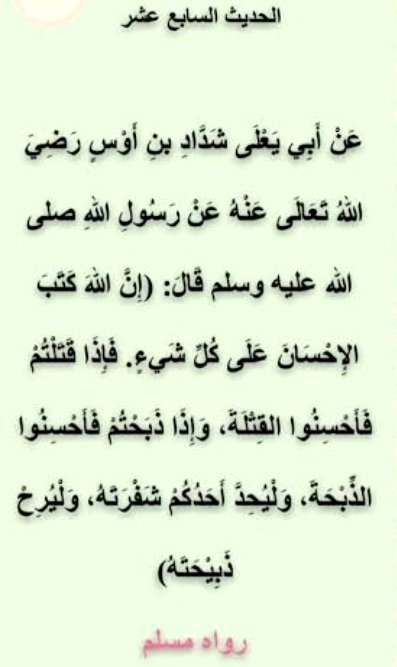 الحديث السابع عشر
عَنْ أَبِي يَعْلَى شَدَّادِ بنِ أَوْسٍ رَضِيَ
اللهُ تَعَالَى عَنْهُ عَنْ رَسُولِ اللهِ صلى
الله عليه وسلم قَالَ: (إِنَّ اللهَ كَتَبَ
الإِحْسَانَ عَلَى كُلِّ شَيءٍ. فَإِذَا قَتَلْتُمْ
فَأَحْسِنُوا القِتْلَةَ، وَإِذَا ذَبَحْتُمْ فَأَحْسِنُوا
الذِّبْحَةَ، وَلْيُحِدَّ أَحَدُكُمْ شَفْرَتَهُ، وَلْيُرِحْ
ذَبِيْحَتَهُ)
رواه مسلم